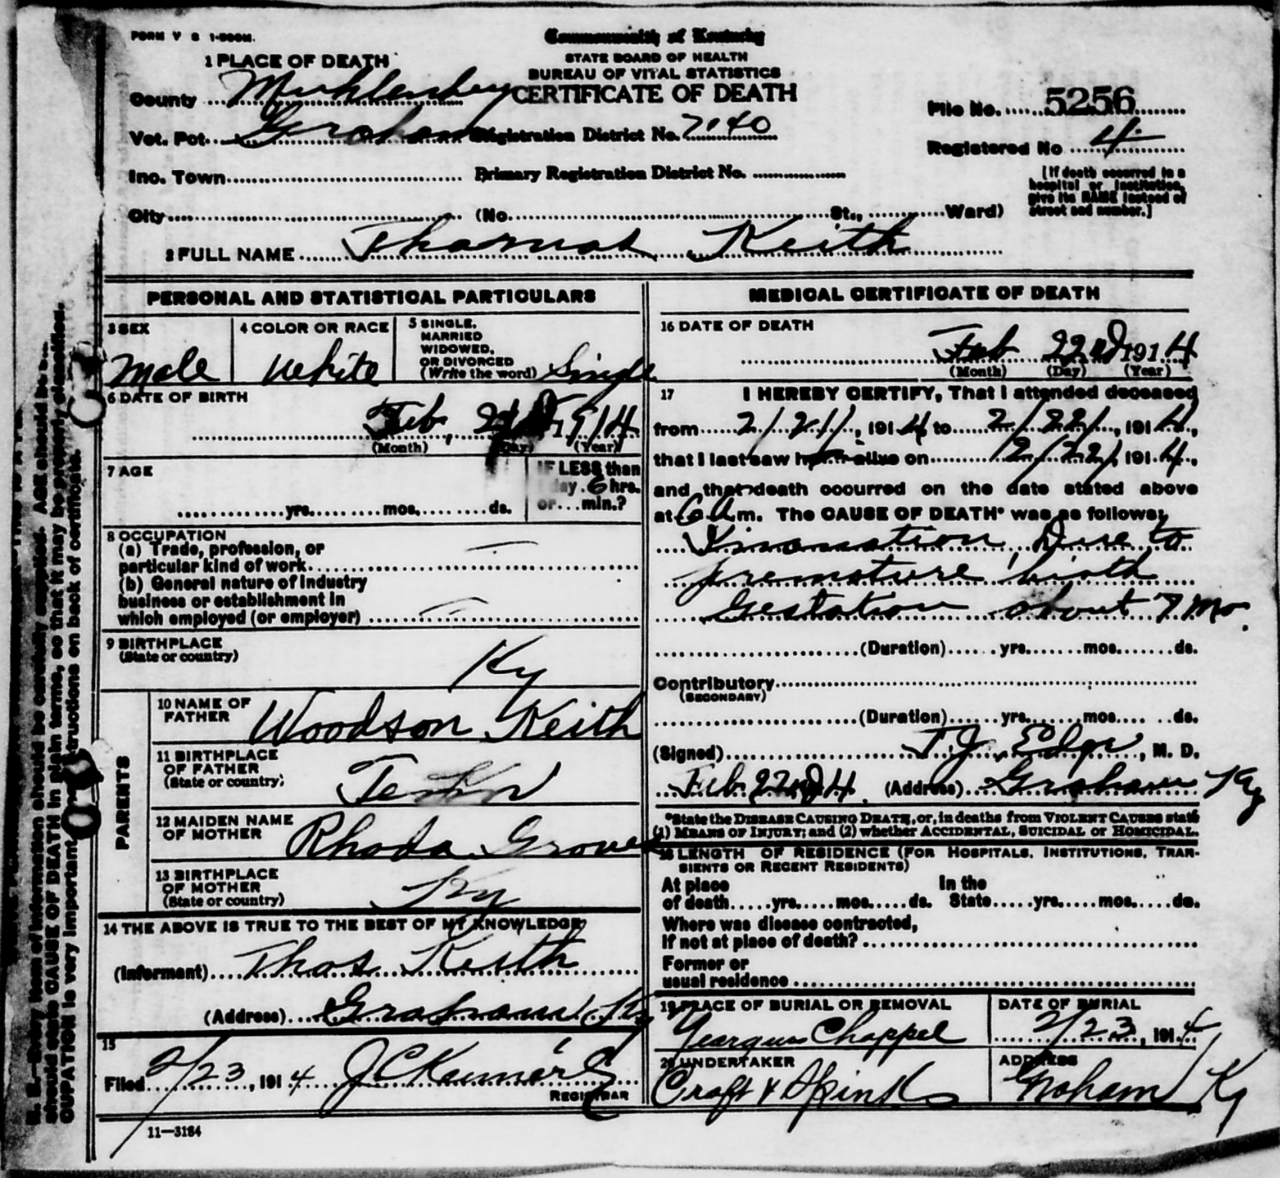 FORM V S 1-
Commonwealth of Kentucky
STATE BOARD OF HEALTH
BUREAU OF VITAL STATISTICS
CERTIFICATE OF DEATH
1 PLACE OF DEATH
County Muhlenberg
Vot. Pct. Graham Registration District No. 7040
File No. 5256
Registered No 4
Inc. Town Primary Registration District No.
[If death occurred in a hospital or institution, give its NAME instead of street and number.]
City (No. St., Ward)
2 FULL NAME Thomas Keith
PERSONAL AND STATISTICAL PARTICULARS
3 SEX Male
4 COLOR OR RACE White
5 SINGLE, MARRIED WIDOWED, OR DIVORCED (Write the word) Single
6 DATE OF BIRTH
Feb, 1914
(Month) (Day) (Year)
7 AGE
yrs. mos. ds.
IF LESS than
1 day 6 hrs.
or min.?
8 OCCUPATION
(a) Trade, profession, or
particular kind of work —
(b) General nature of industry
business or establishment in
which employed (or employer) —
9 BIRTHPLACE
(State or country)
Ky
PARENTS
10 NAME OF FATHER Woodson Keith
11 BIRTHPLACE OF FATHER (State or country) Tenn
12 MAIDEN NAME OF MOTHER Rhoda Groves
13 BIRTHPLACE OF MOTHER (State or country) Ky
14 THE ABOVE IS TRUE TO THE BEST OF MY KNOWLEDGE
(Informant) Thos Keith
(Address) Graham Ky
15
Filed 2/23, 1914
REGISTRAR
11—3184
MEDICAL CERTIFICATE OF DEATH
16 DATE OF DEATH
Feb 22nd 1914
(Month) (Day) (Year)
17 I HEREBY CERTIFY, That I attended deceased
from 2/21/, 1914 to 2/22/, 1914,
that I last saw h alive on 2/22/ 1914,
and that death occurred on the date stated above
at 6 a m. The CAUSE OF DEATH* was as follows:
Inanation Due to
premature birth
Gestation about 7 Mo.
(Duration) yrs. mos. ds.
Contributory
(SECONDARY)
(Duration) yrs. mos. ds.
(Signed) T.J. , M. D.
Feb 22nd 14 (Address) Graham Ky
*State the DISEASE CAUSING DEATH, or, in deaths from VIOLENT CAUSES state
(1) MEANS OF INJURY; and (2) whether ACCIDENTAL, SUICIDAL or HOMICIDAL.
18 LENGTH OF RESIDENCE (FOR HOSPITALS, INSTITUTIONS, TRAN-
SIENTS OR RECENT RESIDENTS)
At place of death yrs. mos. ds. In the State yrs. mos. ds.
Where was disease contracted,
if not at place of death?
Former or
usual residence
19 PLACE OF BURIAL OR REMOVAL
Chappel
DATE OF BURIAL
2/23, 1914
20 UNDERTAKER
Craft &
ADDRESS
Graham Ky
N. B.—Every item of information should be carefully supplied. AGE should be
should state CAUSE OF DEATH in plain terms, so that it may be properly classified.
CUPATION is very important. instructions on back of certificate.